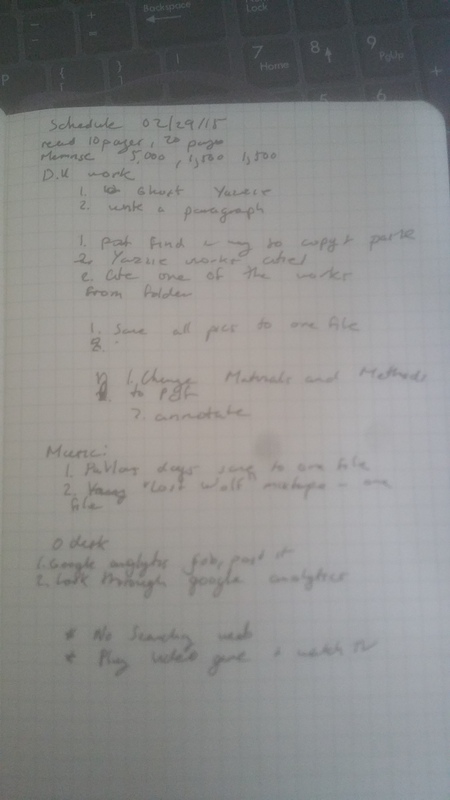 Backspace
Lock
7
Home
8
9
PgUp
5
6
P
Schedule 02/29/15
read 10 pages, 20 pages
Memrise 5,000, 1,500 1,500
D.K work
1. Short Yazzie
2. write a paragraph
1. find a way to copy + paste
2. Yazzie works cited
2. Cite one of the works
from folder
1. Save all pics to one file
2.
1. Change Materials and Methods
to PDF
2. annotate
Music:
1. days song to one file
2. "Lost Wolf" mixtape - one
file
Odesk
1. Google analytics link, past it
2. Look through google analytics
* No Searching web
* Play video game + watch TV